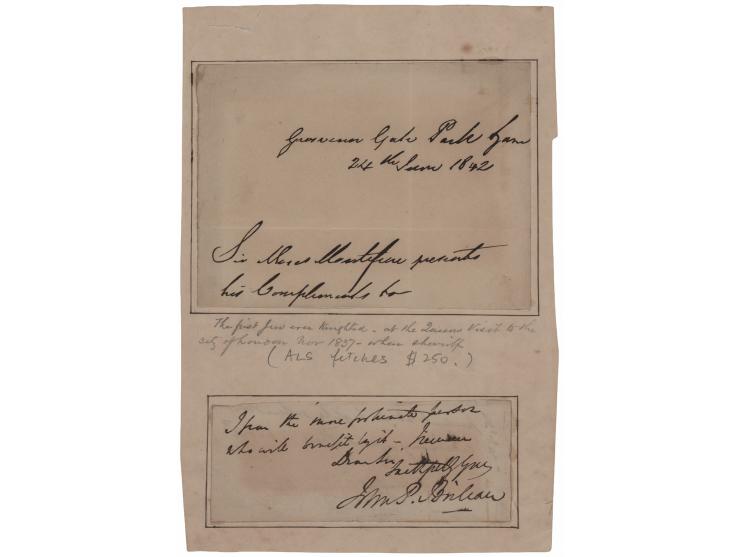 Grosvenor Gate Park Lane
24th June 1842
Sir Moses Montefiore presents
his Compliments to
The first Jew ever Knighted - at the Queens Visit to the
city of London Nov 1837 - when sheriff
(ALS fetches $250.)
the more fortunate person
who will benefit by it -
Dear Sir
John P. Boileau